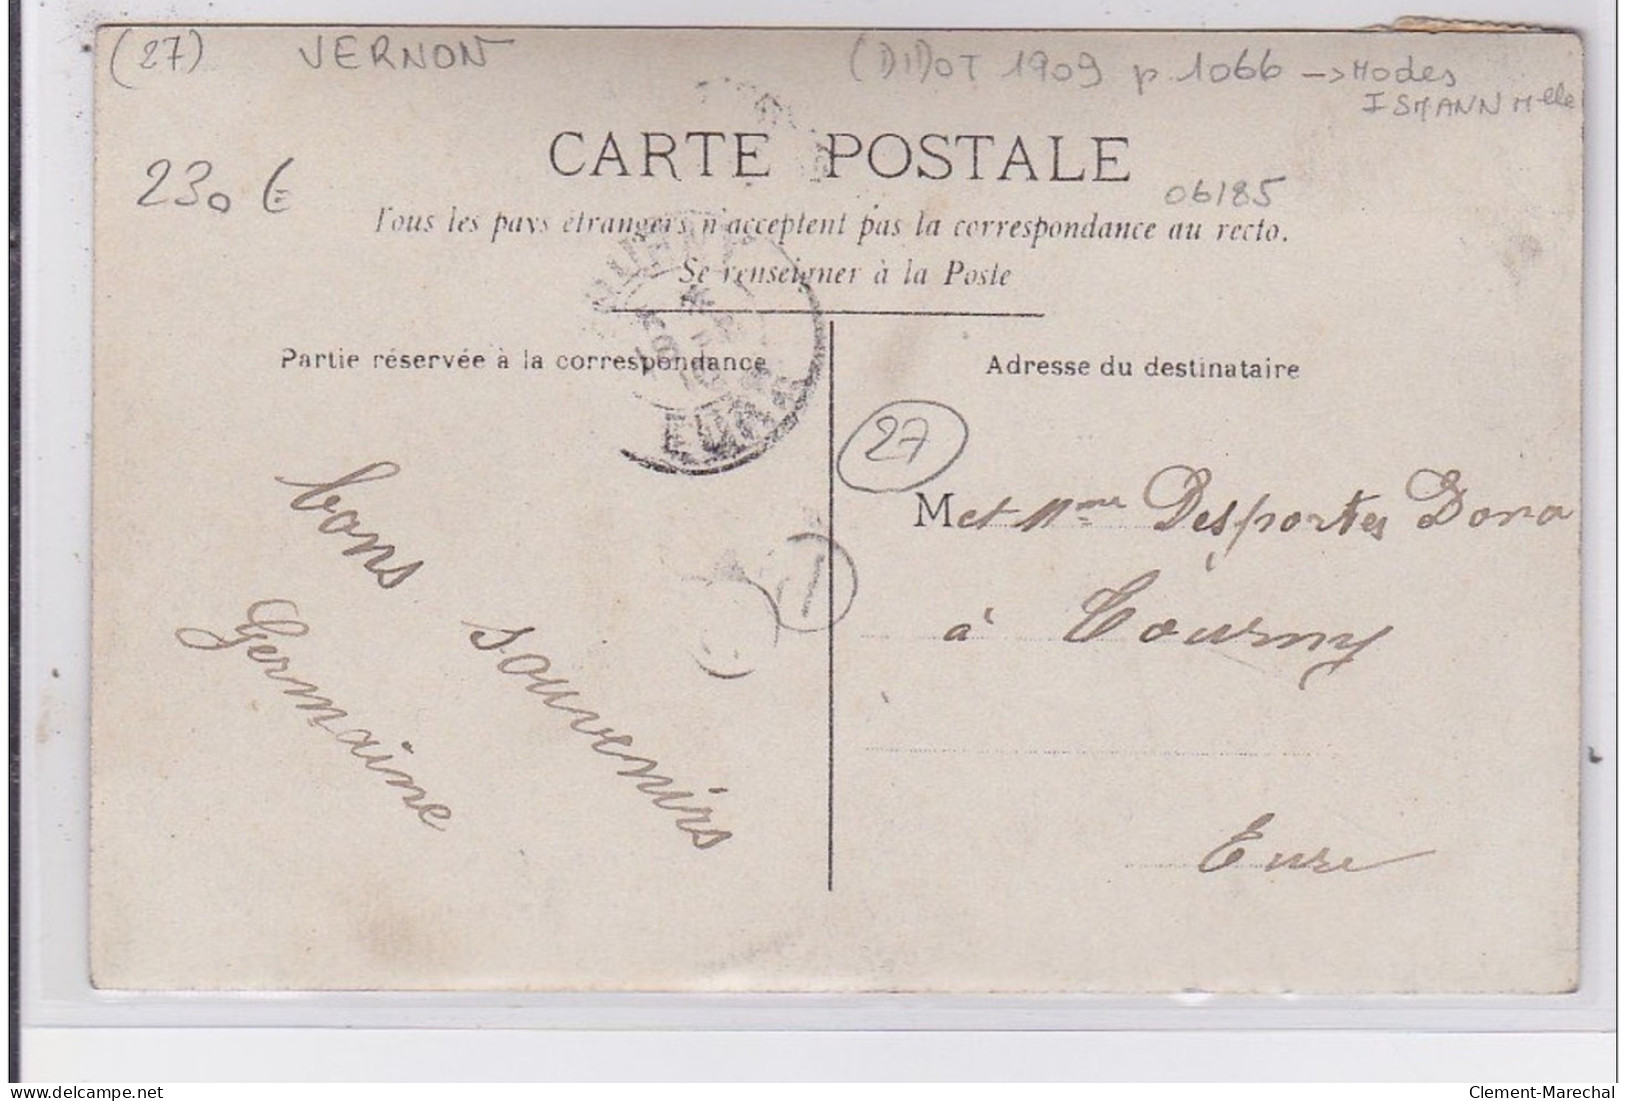 (27) VERNON (DIDOT 1909 p 1066 -> Modes
ISMANN Mlle
230 €
CARTE POSTALE
06185
Tous les pays étrangers n'acceptent pas la correspondance au recto.
Se renseigner à la Poste
Partie réservée à la correspondance
Adresse du destinataire
EURE
27
bons souvenirs
Germaine
M et Mme Desportes Dora
à Tourny
Eure
Clement-Marechal
delcampe.net